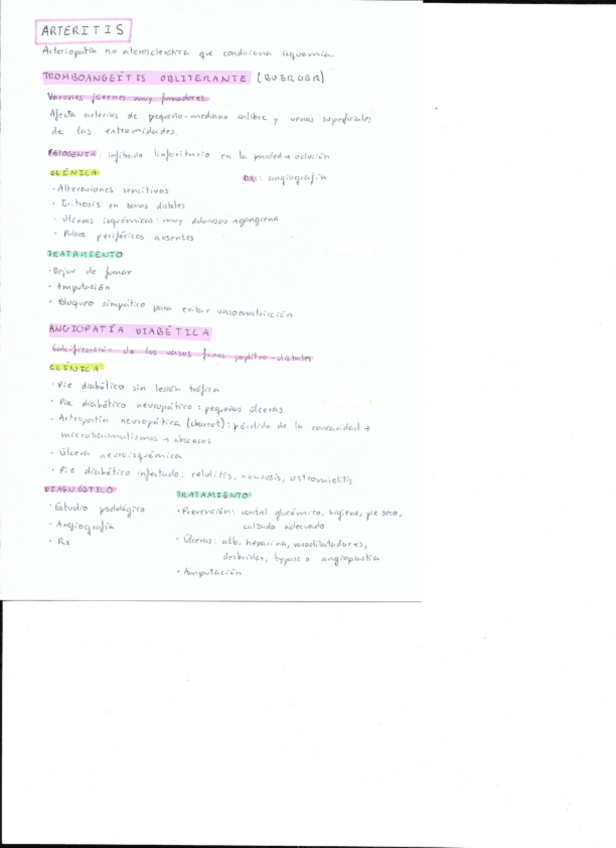 ARTERITIS
Arteriopatía no aterosclerótica que condiciona isquemia.
TROMBOANGEÍTIS OBLITERANTE (BUERGER)
Varones jóvenes muy fumadores
Afecta arterias de pequeño-mediano calibre y venas superficiales
de las extremidades.
PATOGENIA: infiltrado linfocitario en la pared → oclusión
CLÍNICA
DX: angiografía
· Alteraciones sensitivas
· en zonas distales
· Úlceras isquémicas: muy dolorosas → gangrena
· Pulsos periféricos ausentes
TRATAMIENTO
· Dejar de fumar
· Amputación
· Bloqueo simpático para evitar vasoconstricción
ANGIOPATÍA DIABÉTICA
Calcificación de los vasos finos poplíteo-distales
CLÍNICA
· Pie diabético sin lesión trófica
· Pie diabético neuropático: pequeñas úlceras
· Artropatía neuropática (charcot): pérdida de la concavidad →
microtraumatismos → abscesos
· Úlcera neuroisquémica
· Pie diabético infectado: celulitis, necrosis, osteomielitis
DIAGNÓSTICO
· Estudio podológico
· Angiografía
· Rx
TRATAMIENTO
· Prevención: control glucémico, higiene, pie seco,
calzado adecuado
· Úlceras: atb, heparina, vasodilatadores,
desbridar, bypass o angioplastia
· Amputación